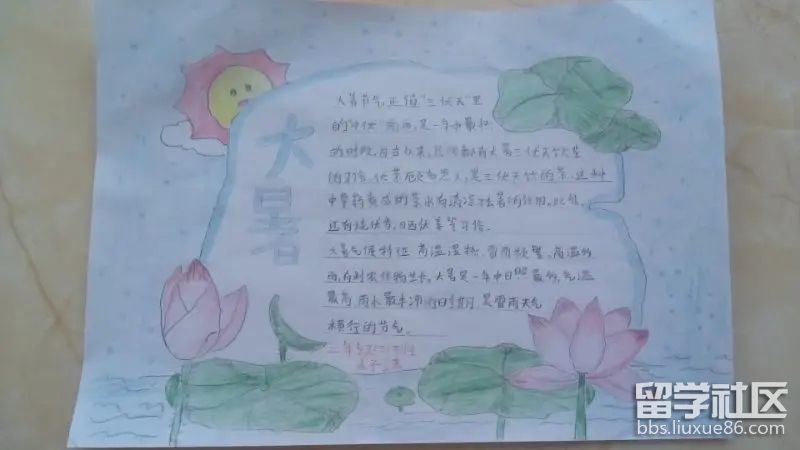 大暑
大暑节气正值"三伏天"里
的"中伏"前后,是一年中最热
的时段。自古以来,民间都有大暑三伏天饮茶
的习俗。伏茶顾名思义,是三伏天饮的茶,这种
中草药煮成的茶水有清凉祛暑的作用。此外,
还有烧伏香,晒伏姜等习俗。
大暑气候特征 高温湿热、雷雨频繁、高温
雨,有利农作物生长。大暑是一年中日照最多、气温
最高,雨水最丰沛的时期,是雷雨天气
横行的节气。
二年级
留学社区
bbs.liuxue86.com